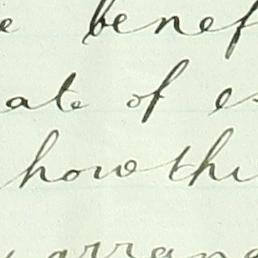 e benef
ate of es
how thi
arrang